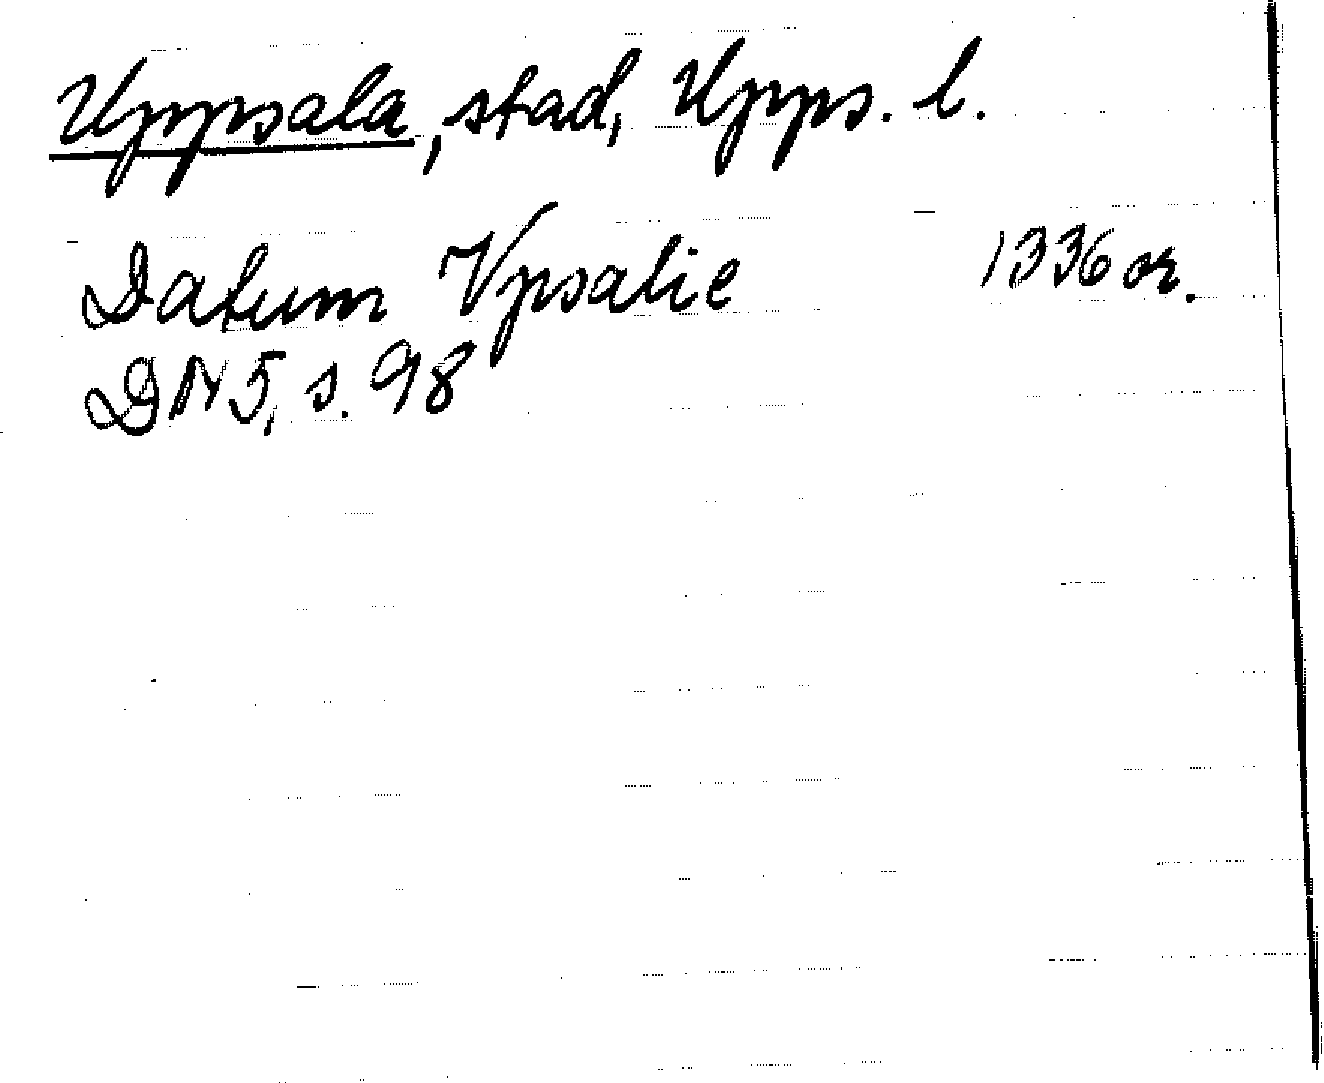 Uppsala, stad, Upps. l.
Datum Vpsalie 1336 or.
DN 5, s. 98